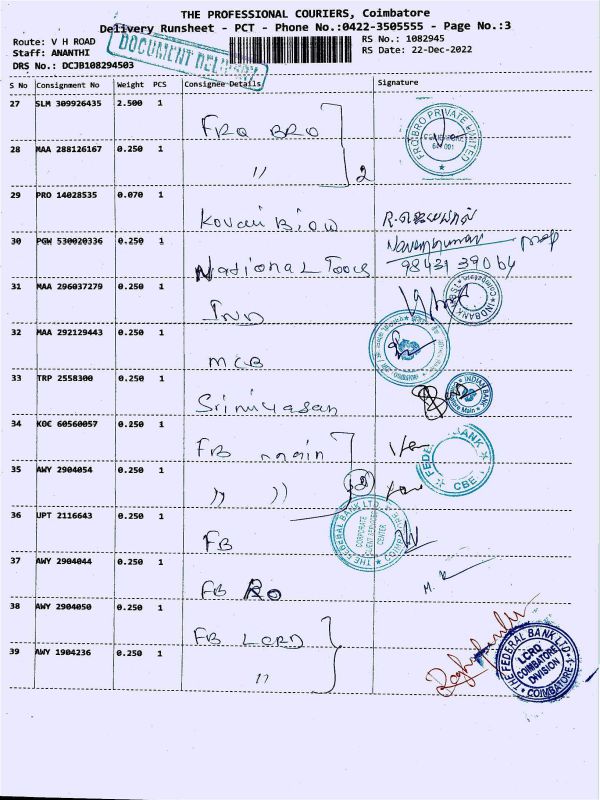 THE PROFESSIONAL COURIERS, Coimbatore
Delivery Runsheet - PCT - Phone No.:0422-3505555 - Page No.:3
Route: V H ROAD
RS No.: 1082945
Staff: ANANTHI
RS Date: 22-Dec-2022
DRS No.: DCJB108294503
DOCUMENT DELIVERY
S No Consignment No Weight PCS Consignee Details Signature
27 SLM 309926435 2.500 1
FRO BRO
FRO BRO PRIVATE LIMITED
28 MAA 288126167 0.250 1
" 2
29 PRO 14028535 0.070 1
Kovai Biow
30 PGW 530020336 0.250 1
National Tools
Naveenkumar
98431 39064
31 MAA 296037279 0.250 1
IND
INDBANK
32 MAA 292129443 0.250 1
MCB
33 TRP 2558300 0.250 1
Srinivasan
INDIAN BANK
34 KOC 60560057 0.250 1
FB main
FEDERAL BANK CBE
35 AWY 2904054 0.250 1
" "
36 UPT 2116643 0.250 1
FB
THE FEDERAL BANK LTD.
CORPORATE
CLIENT SERVICES
CENTER
37 AWY 2904044 0.250 1
FB RO
38 AWY 2904050 0.250 1
FB LCRD
39 AWY 1904236 0.250 1
"
THE FEDERAL BANK LTD.
LCRD
COIMBATORE
DIVISION
COIMBATORE